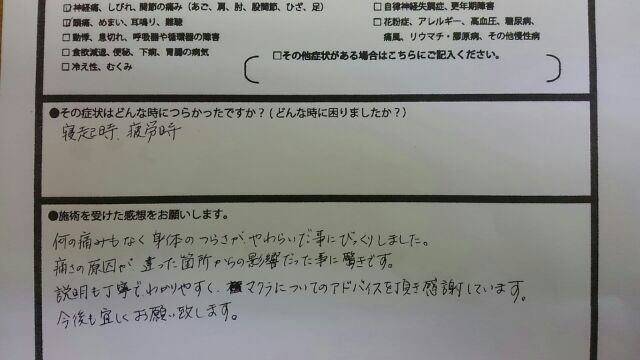 ☑神経痛、しびれ、関節の痛み（あご、肩、肘、股関節、ひざ、足）
☑頭痛、めまい、耳鳴り、難聴
□動悸、息切れ、呼吸器や循環器の障害
□食欲減退、便秘、下痢、胃腸の病気
□冷え性、むくみ
□自律神経失調症、更年期障害
□花粉症、アレルギー、高血圧、糖尿病、
痛風、リウマチ・膠原病、その他慢性病
□その他症状がある場合はこちらにご記入ください。
●その症状はどんな時につらかったですか？（どんな時に困りましたか？）
寝起き時、疲労時
●施術を受けた感想をお願いします。
何の痛みもなく身体のつらさが、やわらいだ事にびっくりしました。
痛さの原因が、違った箇所からの影響だった事に驚きです。
説明も丁寧で、わかりやすく、マクラについてのアドバイスを頂き感謝しています。
今後も宜しくお願い致します。